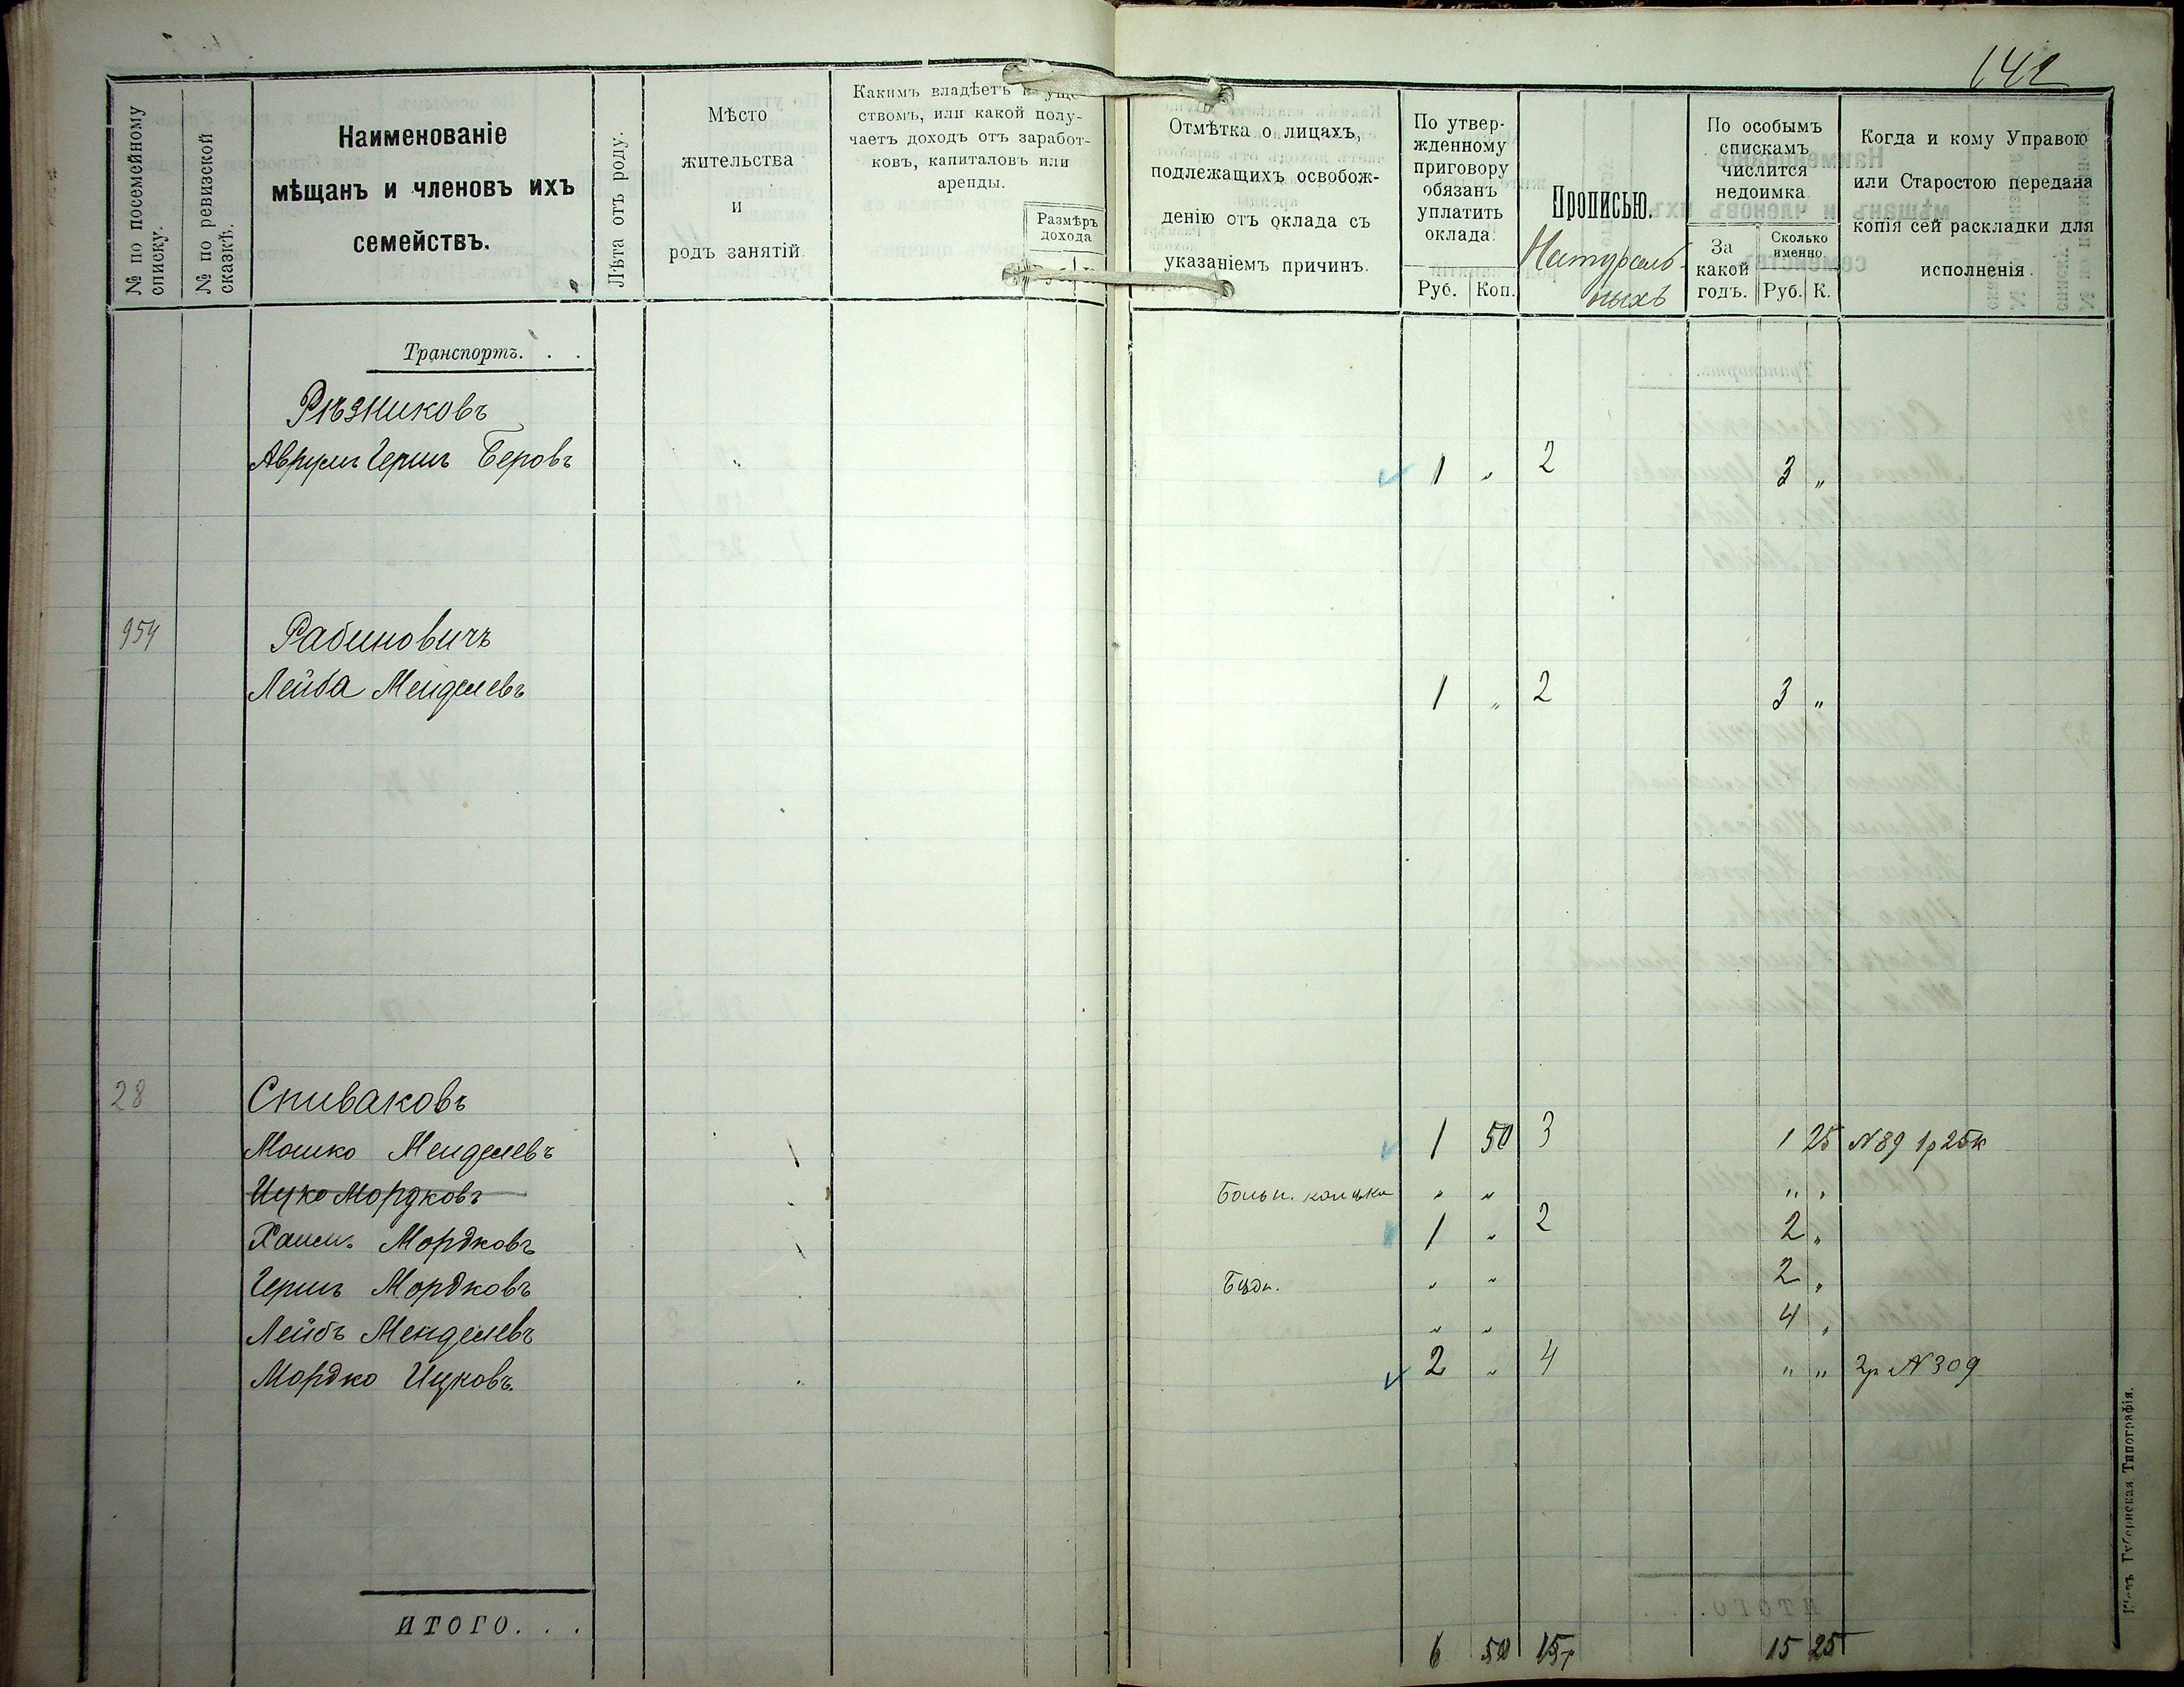 142
№ по посемейному списку.
№ по ревизской сказкѣ.
Наименованіе
мѣщанъ и членовъ ихъ
семействъ.
Лѣта отъ роду.
Мѣсто
жительства
и
родъ занятій
Какимъ владѣетъ
ствомъ, или какой полу-
чаетъ доходъ отъ заработ-
ковъ, капиталовъ или
аренды.
Размѣръ
дохода
Отмѣтка о лицахъ,
подлежащихъ освобож-
денію отъ оклада съ
указаніемъ причинъ.
По утвер-
жденному
приговору
обязанъ
уплатить
оклада
Руб. Коп.
Прописью.
Натураль-
ныхъ
По особымъ
спискамъ
числится
недоимка
За
какой
годъ.
Сколько
именно
Руб. К.
Когда и кому Управою
или Старостою передана
копія сей раскладки для
исполненія.
Транспортъ. . .
Рѣзниковъ
Аврумъ Гершъ Беровъ 1 „ 2 3 „
954 Рабиновичъ
Лейба Менделевъ 1 „ 2 3 „
28 Спиваковъ
Мошко Менделевъ 1 50 3 1 25 N 89 1р 25к
Ицко Мордковъ „ „ „ „
Хаимъ Мордковъ 1 „ 2 2 „
Гершъ Мордковъ Бѣдн. „ „ 2 „
Лейбъ Менделевъ „ „ 4 „
Мордко Ицковъ. 2 „ 4 „ „ 2р N 309
ИТОГО. . .
6 50 15 25
Губернская Типографія.